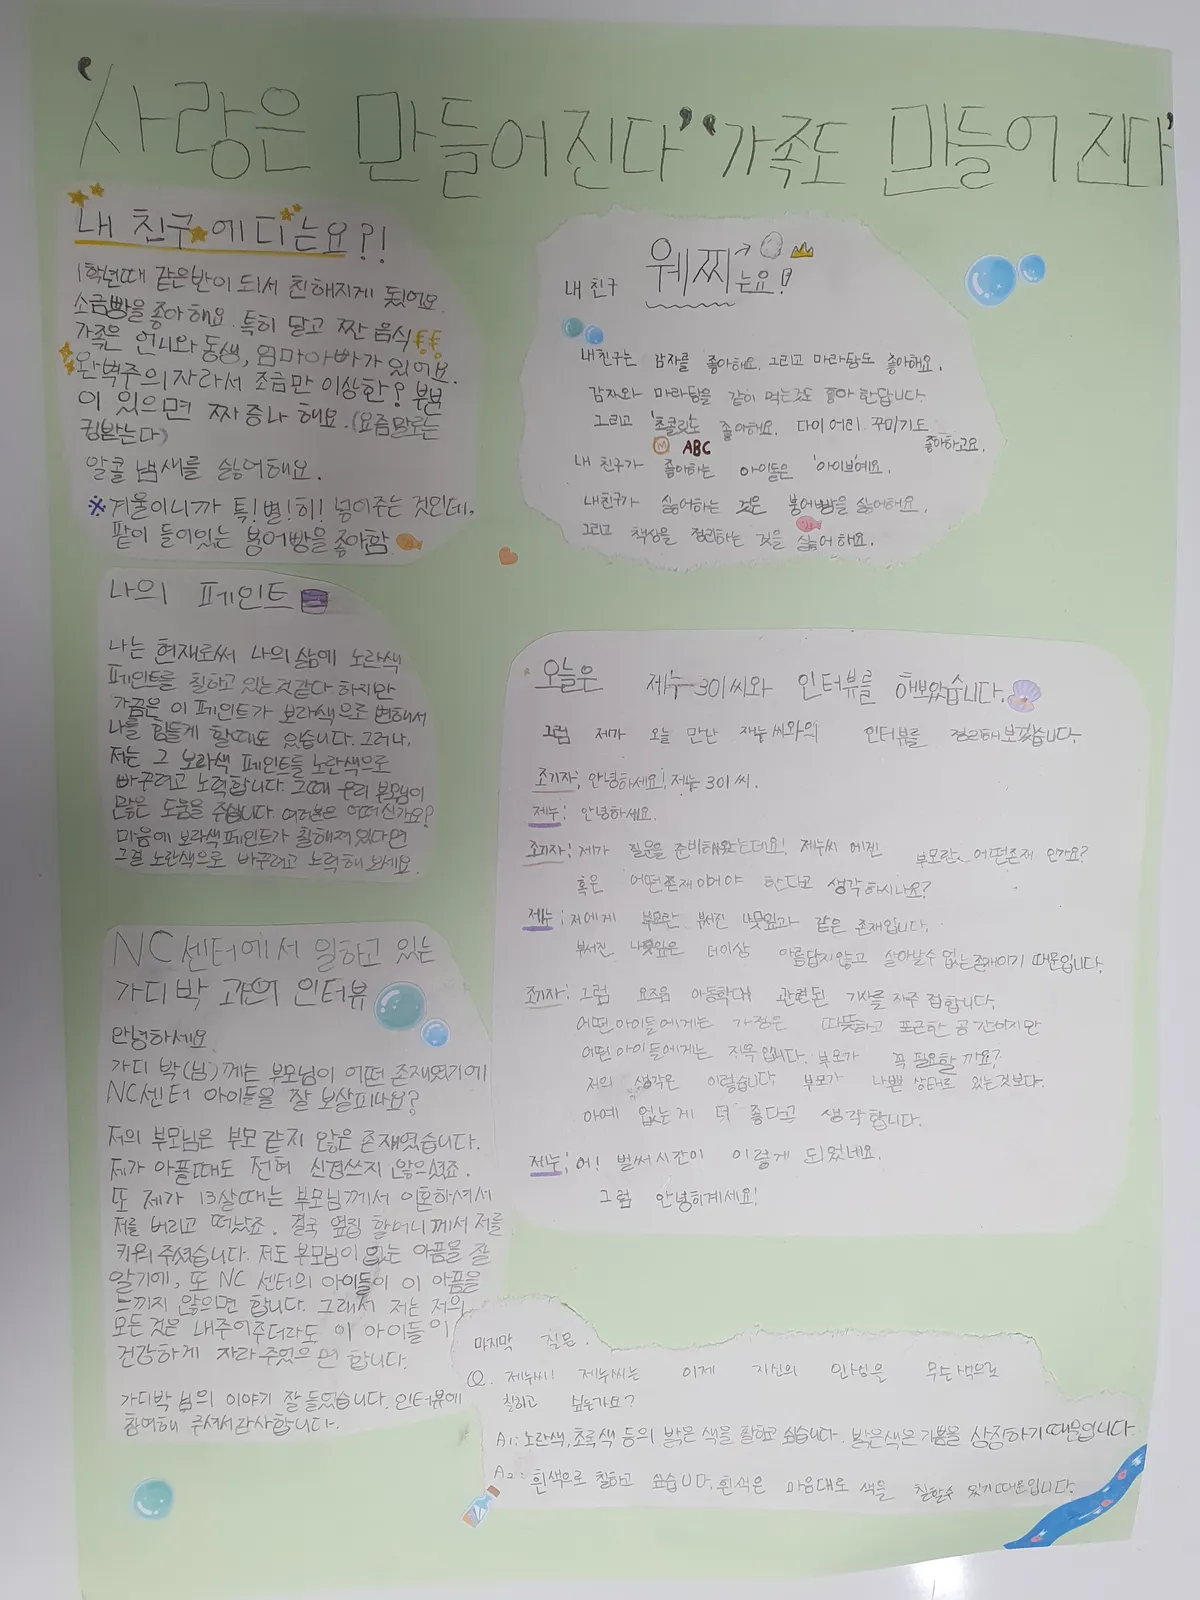 '사랑은 만들어진다' '가족도 만들어진다'
내 친구 에디는요?!
1학년때 같은반이 되서 친해지게 됬어요.
소금빵을 좋아해요. 특히 달고 짠 음식
가족은 언니와 동생, 엄마아빠가 있어요.
완벽주의자라서 조금만 이상한? 부분
이 있으면 짜증나 해요. (요즘말로는
킹받는다)
알콜 냄새를 싫어해요.
※겨울이니까 특!별!히! 넣어주는 것인데,
팥이 들어있는 붕어빵을 좋아함
내 친구 웨찌는요!
내친구는 감자를 좋아해요. 그리고 마라탕도 좋아해요.
감자와 마라탕을 같이 먹는것도 좋아 한답니다.
그리고 '초콜릿도 좋아해요. 다이어리 꾸미기도
좋아하고요.
M ABC
내 친구가 좋아하는 아이돌은 '아이브'예요.
내친구가 싫어하는 것은 붕어빵을 싫어해요.
그리고 책상을 정리하는 것을 싫어해요.
나의 페인트
나는 현재로써 나의 삶에 노란색
페인트를 칠하고 있는것같다. 하지만
가끔은 이 페인트가 보라색으로 변해서
나를 힘들게 할때도 있습니다. 그러나,
저는 그 보라색 페인트를 노란색으로
바꾸려고 노력합니다. 그때 우리 부모님이
많은 도움을 주십니다. 여러분은 어떠신가요?
마음에 보라색페인트가 칠해져 있다면
그걸 노란색으로 바꾸려고 노력해 보세요.
오늘은 제누301씨와 인터뷰를 해보았습니다.
그럼 제가 오늘 만난 제누씨와의 인터뷰를 정리해보겠습니다.
조기자: 안녕하세요! 제누 301씨.
제누: 안녕하세요.
조기자: 제가 질문을 준비해왔는데요! 제누씨 에겐 부모란 어떤존재 인가요?
혹은 어떤존재이어야 한다고 생각하시나요?
제누: 저에게 부모란 부서진 나뭇잎과 같은 존재입니다.
부서진 나뭇잎은 더이상 아름답지않고 살아날수 없는존재이기 때문입니다.
조기자: 그럼 요즈음 아동학대 관련된 기사를 자주 접합니다.
어떤아이들에게는 가정은 따뜻하고 포근한 공간이지만
어떤 아이들에게는 지옥입니다. 부모가 꼭 필요할까요?
저의 생각은 이렇습니다. 부모가 나쁜 상태로 있는것보다.
아예 없는게 더 좋다고 생각합니다.
제누: 어! 벌써시간이 이렇게 되었네요.
그럼 안녕히계세요!
NC센터에서 일하고 있는
가디 박 과의 인터뷰
안녕하세요
가디 박(님)께는 부모님이 어떤 존재였기에
NC센터 아이들을 잘 보살피나요?
저의 부모님은 부모 같지 않은 존재였습니다.
제가 아플때도 전혀 신경쓰지 않으셨죠.
또 제가 13살때는 부모님께서 이혼하셔서
저를 버리고 떠났죠. 결국 옆집 할머니께서 저를
키워주셨습니다. 저도 부모님이 없는 아픔을 잘
알기에, 또 NC 센터의 아이들이 이 아픔을
느끼지 않으면 합니다. 그래서 저는 저의
모든 것은 내주어주더라도 이 아이들이
건강하게 자라 주었으면 합니다.
가디박 님의 이야기 잘 들었습니다. 인터뷰에
참여해 주셔서 감사합니다.
마지막 질문.
Q. 제누씨! 제누씨는 이제 자신의 인생을 무슨색으로
칠하고 싶은가요?
A1: 노란색, 초록색 등의 밝은 색을 칠하고 싶습니다. 밝은색은 기쁨을 상징하기 때문입니다.
A2: 흰색으로 칠하고 싶습니다. 흰색은 마음대로 색을 칠할수 있기때문입니다.